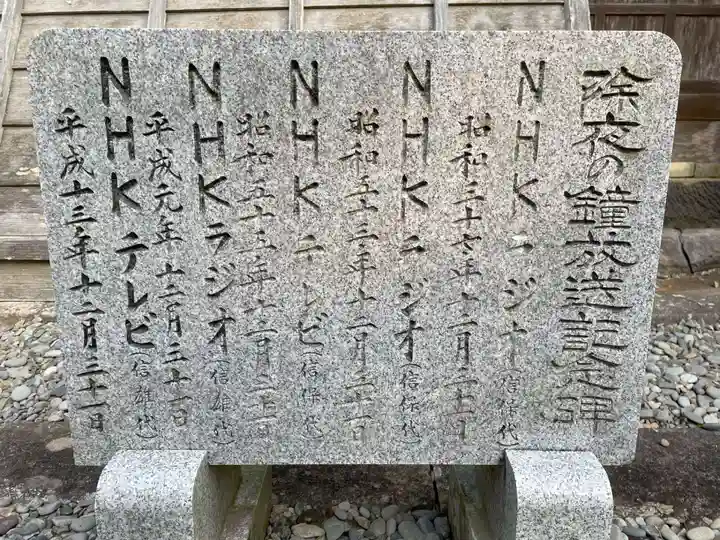 除夜の鐘放送記念碑
NHKラジオ(信保代)
昭和三十七年十二月三十一日
NHKラジオ(信保代)
昭和五十三年十二月三十一日
NHKテレビ(信保代)
昭和五十五年十二月三十一日
NHKラジオ(信雄代)
平成元年十二月三十一日
NHKテレビ(信雄代)
平成十三年十二月三十一日